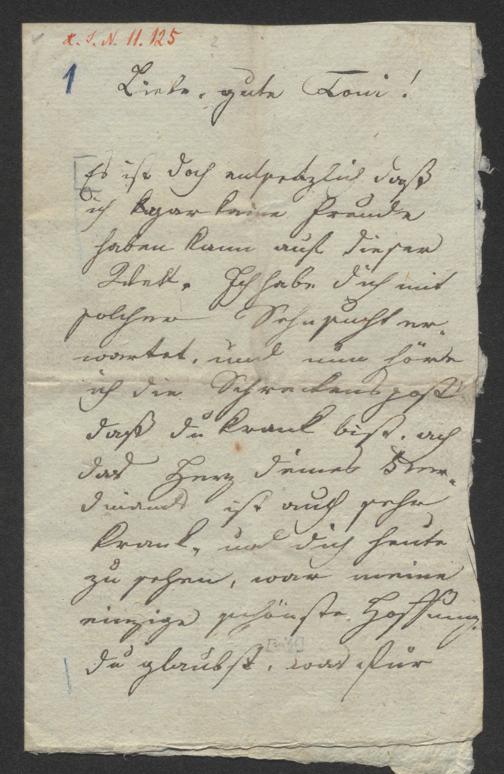 H. I. N. 11.125
1
Liebe, gute Toni!
Es ist doch entsetzlich daß
ich gar keine Freude
haben kann auf dieser
Welt. Ich habe dich mit
solcher Sehnsucht er-
wartet, und nun höre
ich die Schreckenspost
daß du krank bist. ach
das Herz deines Fer-
dinands ist auch sehr
krank, und dich heute
zu sehen, war meine
einzige schönste Hoffnung.
du glaubst, was für